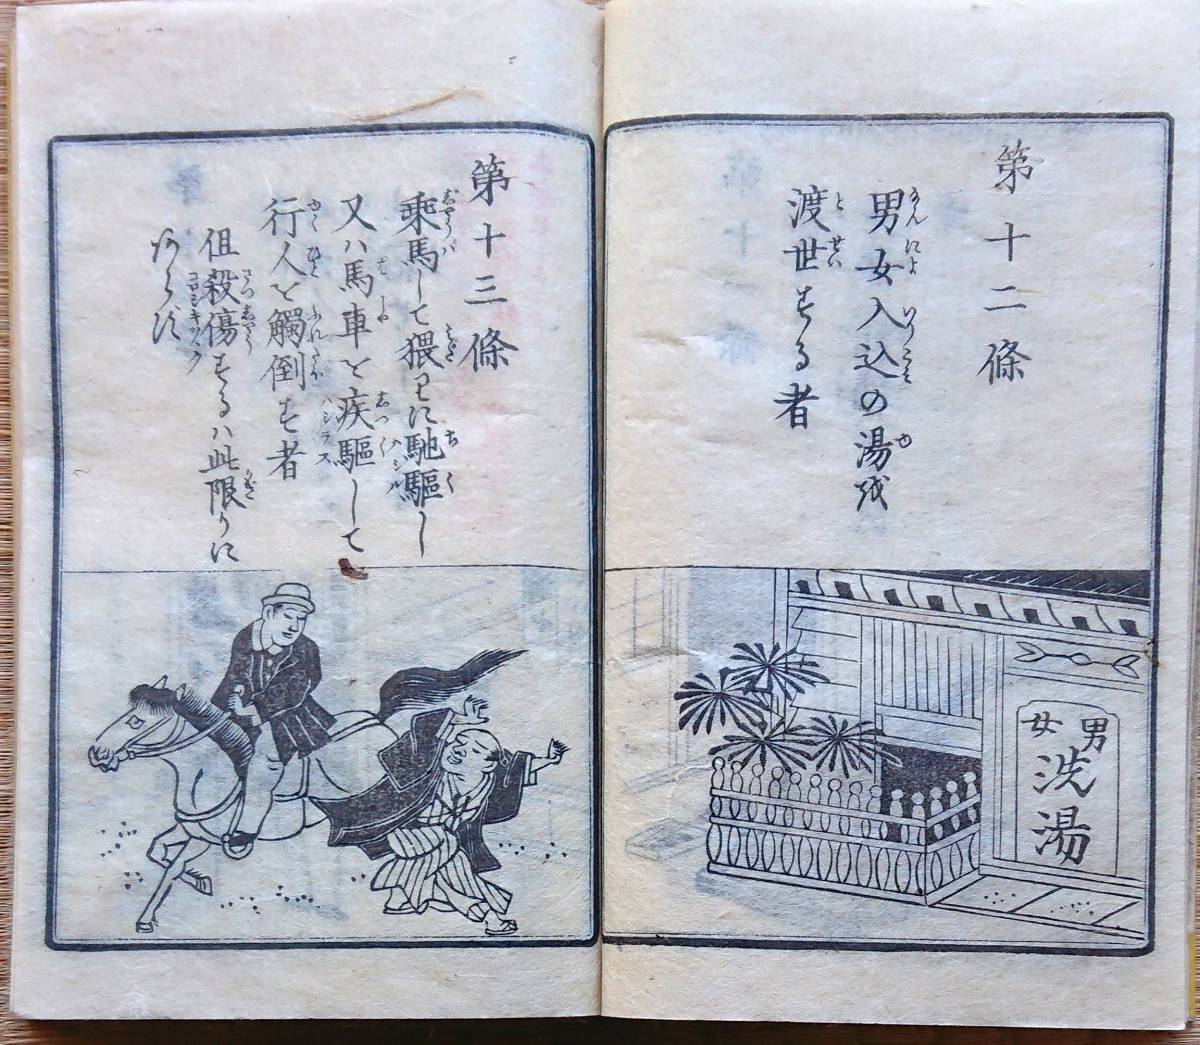 第十二條
男女入込の湯を
渡世する者
男
女
洗湯
第十三條
乗馬して猥りに馳驅し
又ハ馬車を疾驅して
行人を觸倒す者
但殺傷するハ此限りに
あらず